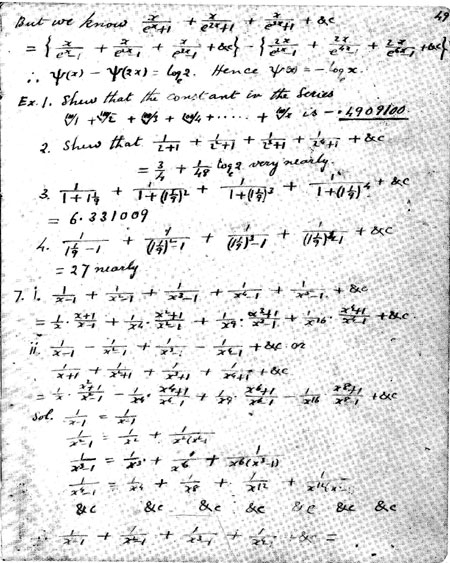 49
But we know x/(e^x+1) + x/(e^{2x}+1) + x/(e^{3x}+1) + &c
= {x/(e^x-1) + x/(e^{2x}-1) + x/(e^{3x}-1) + &c} - {2x/(e^{2x}-1) + 2x/(e^{4x}-1) + 2x/(e^{6x}-1) + &c}
∴ ψ(x) - ψ(2x) = log 2. Hence ψ(x) = - log x.
Ex. 1. Shew that the constant in the series
is -.4909100.
2. Shew that 1/(2+1) + 1/(2^2+1) + 1/(2^3+1) + 1/(2^4+1) + &c
= 3/4 + 1/48 log 2 very nearly.
3. + &c
= 6.331009
4. + &c
= 27 nearly
7. i. 1/(x-1) + 1/(x^2-1) + 1/(x^3-1) + 1/(x^4-1) + 1/(x^5-1) + &c
= 1/x · (x+1)/(x-1) + 1/x^4 · (x^2+1)/(x^2-1) + 1/x^9 · (x^3+1)/(x^3-1) + 1/x^16 · (x^4+1)/(x^4-1) + &c
ii. 1/(x-1) - 1/(x^2-1) + 1/(x^3-1) - 1/(x^4-1) + &c or
1/(x+1) + 1/(x^2+1) + 1/(x^3+1) + 1/(x^4+1) + &c
= 1/x · (x^2+1)/(x^2-1) - 1/x^4 · (x^4+1)/(x^4-1) + 1/x^9 · (x^6+1)/(x^6-1) - 1/x^16 · (x^8+1)/(x^8-1) + &c
Sol. 1/(x-1) = 1/(x-1)
1/(x^2-1) = 1/x^2 + 1/(x^2(x^2-1))
1/(x^3-1) = 1/x^3 + 1/x^6 + 1/(x^6(x^3-1))
1/(x^4-1) = 1/x^4 + 1/x^8 + 1/x^12 +
&c &c &c &c &c &c &c
∴ 1/(x-1) + 1/(x^2-1) + 1/(x^3-1) + 1/(x^4-1) + &c =